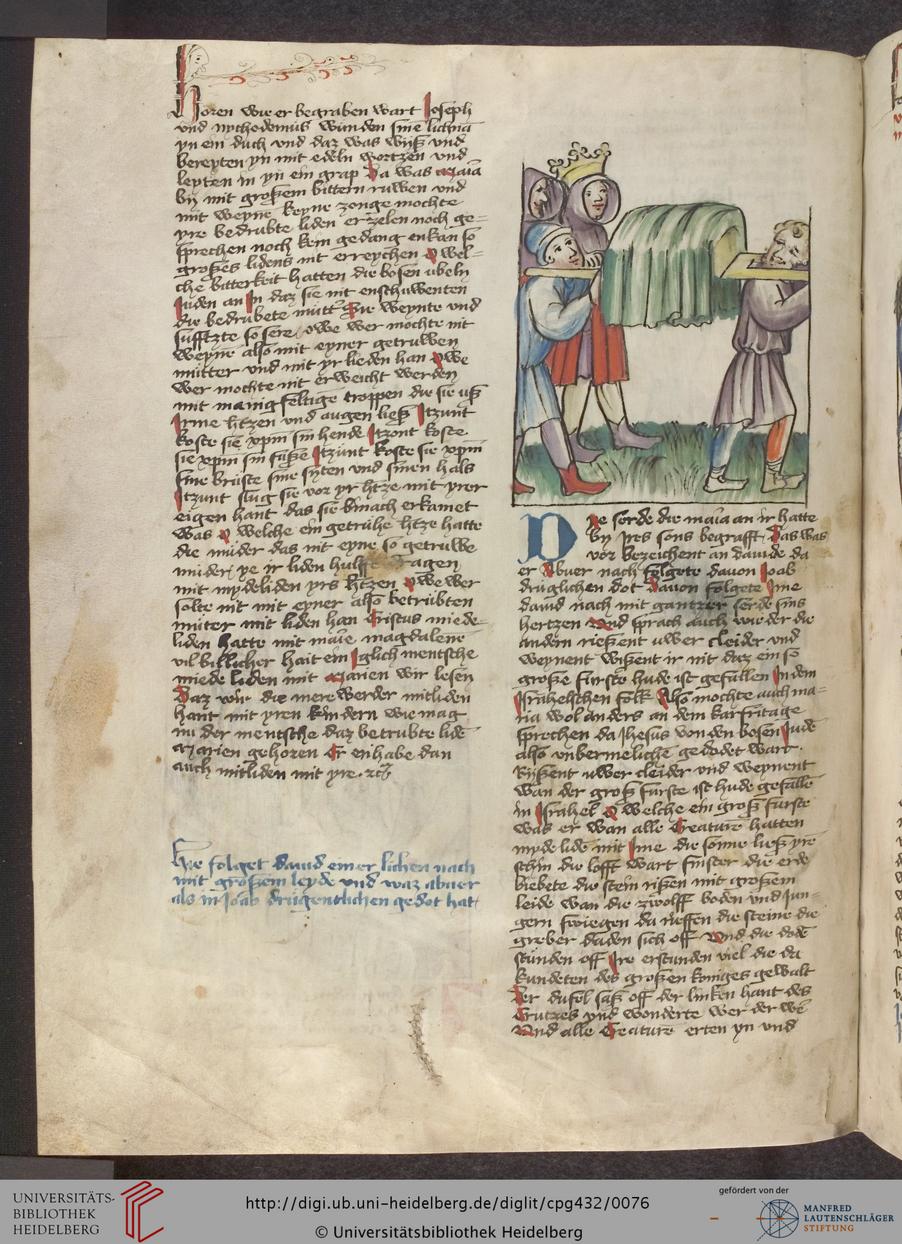 horen wie er begraben wart Joseph
vnd nychodemus wunden sine lichnā
yn ein duch vnd daz was wyß vnd
bereyten yn mit edeln wortzen vnd
leyten in yn ein grap Da was maīa
by mit großem bittern ruwen vnd
mit weyne keyne zonge mochte
yre bedrubte liden erzelen noch ge=
sprechen noch kein gedang enkan so
großes lidens nit erreychen O wel=
che bitterkeit hatten die bosen ubeln
Juden an In daz sie nit enschuwenten
die bedrubete mutt Sie weynte vnd
sufftzte so sere owe wer mochte nit
weyne also mit eyner getruwen
mutter vnd mit yr lieden han Owe
wer mochte nit erweicht werden
mit manigfeltige troppen die sie uß
Irme htzen vnd augen ließ Itzunt
koste sie xpm sin hende Itzont koste
sie xpm sin fuße Itzunt koste sie xpm
sine bruste sine syten vnd sinen hals
Itzunt slug sie vor yr htze mit yrer
eigen hant das sie binach erkamet
was O welche ein getruhe htze hatte
die muder das nit eyne so getruwe
muder ye ir liden hulffe dragen
mit mydeliden yrs htzen Owe wer
solte nit mit eyner also betrubten
muter mit liden han Cristus miede=
liden hatte mit marie magdalene
vil billicher hait ein Iglich mentsche
miede liden mit marien wir lesen
Daz wir die mere werder mitliden
hant mit yren kindern wie mag
nu der mentsche daz betrubte lidē
marien gehoren Er enhabe dan
auch mitliden mit yre
Hie folget dauid einer lichen nach
mit großem leyde vnd waz abner
als in Joab drugentlichen gedot hat
Die serde die maīa an ir hatte
by yres sons begrafft Das was
vor bezeichent an dauide da
er Abner nach folgete dauon Joab
druglichen dot Dauon folgete Ime
dauid nach mit gantzer serde sins
hertzen Vnd sprach auch wieder die
andern rießent uwer cleider vnd
weynent Wißent ir nit daz ein so
große furste hude ist gefallen In dem
Israhelschen folk Also mochte auch ma=
ria wol anders an dem karfritage
sprechen da Jhesus von den bosen Judē
also vnbermeliche gedodet wart
Rißent uwer cleider vnd weynent
wan der groß furste ist hude gefallē
in Israhel O welche ein groß furste
was er wan alle Creature hatten
myde lidē mit Ime die sonne ließ yrē
schin die lofft wart finster die erde
biebete die stein rißen mit großem
leide wan die zwolff boden vnd Jun=
gern swiegen da rieffen die steine die
greber daden sich off Vnd die dodē
stunden off Ire erstunden viel die da
kundeten des großen koniges gewalt
Der dufel saß off der linken hant des
Crutzes vnd wonderte wer der wē
Vnd alle Creature erten yn vnd
UNIVERSITÄTS-
BIBLIOTHEK
HEIDELBERG
http://digi.ub.uni-heidelberg.de/diglit/cpg432/0076
© Universitätsbibliothek Heidelberg
gefördert von der
MANFRED
LAUTENSCHLÄGER
STIFTUNG